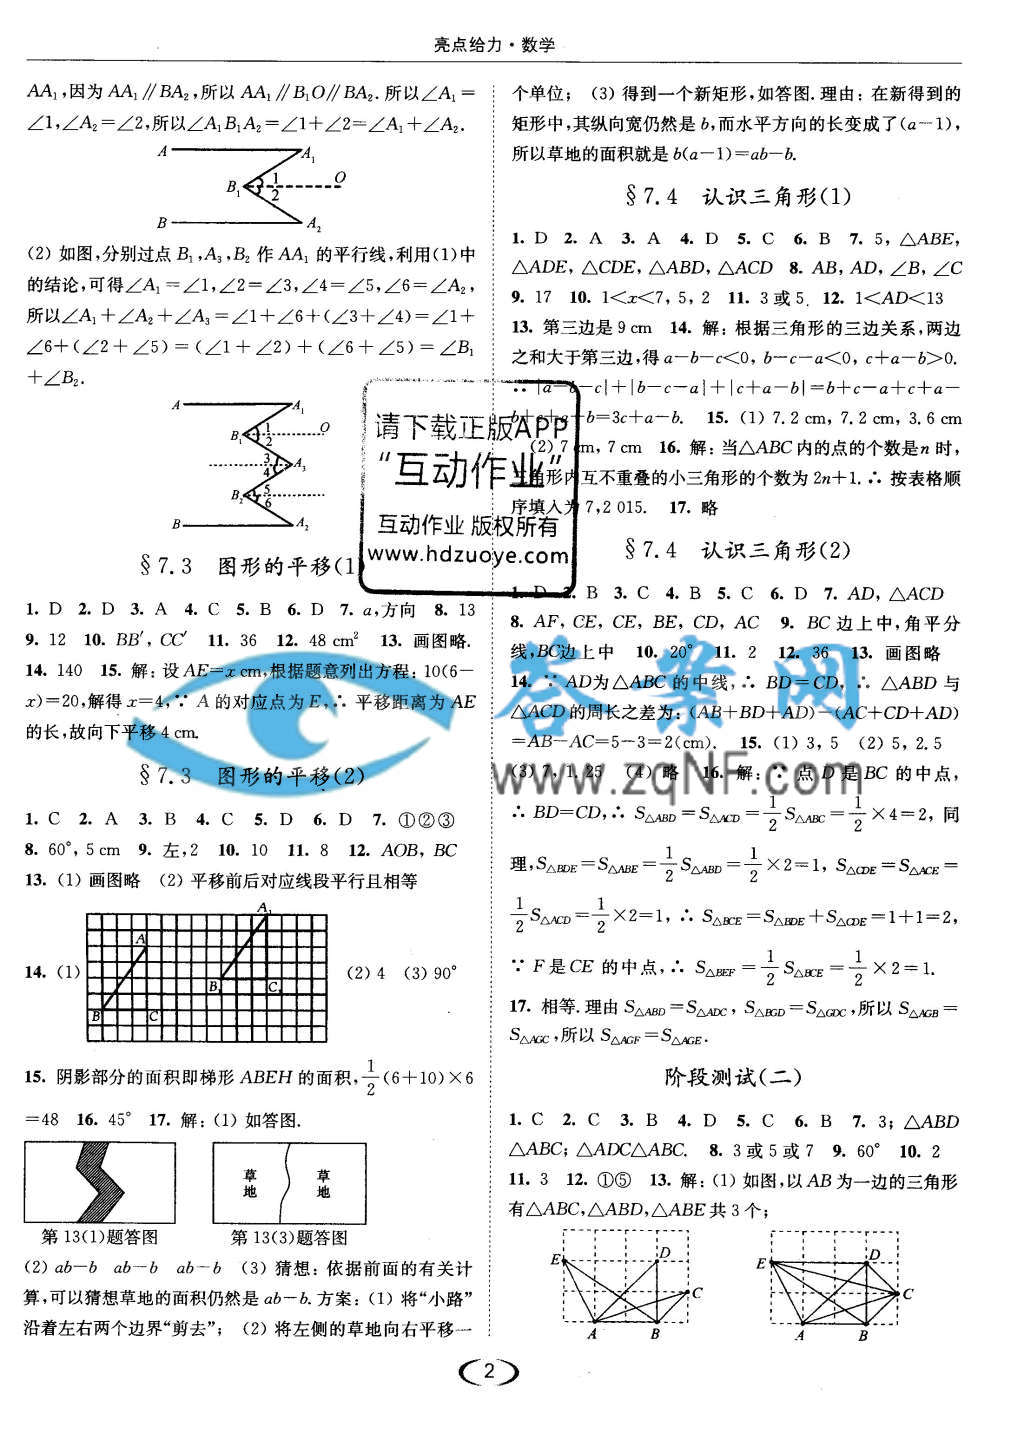 亮点给力·数学
AA₁,因为 AA₁∥BA₂,所以 AA₁∥B₁O∥BA₂. 所以∠A₁=
∠1,∠A₂=∠2,所以∠A₁B₁A₂=∠1+∠2=∠A₁+∠A₂.
A A₁
B₁ 1 2 O
B A₂
(2) 如图,分别过点 B₁,A₃,B₂ 作 AA₁ 的平行线,利用(1)中
的结论,可得∠A₁=∠1,∠2=∠3,∠4=∠5,∠6=∠A₂,
所以∠A₁+∠A₂+∠A₃=∠1+∠6+(∠3+∠4)=∠1+
∠6+(∠2+∠5)=(∠1+∠2)+(∠6+∠5)=∠B₁
+∠B₂.
A A₁
B₁ 1 2 O
3 4 A₃
B₂ 5 6
B A₂
§7.3 图形的平移(1)
1. D 2. D 3. A 4. C 5. B 6. D 7. a,方向 8. 13
9. 12 10. BB′, CC′ 11. 36 12. 48 cm² 13. 画图略.
14. 140 15. 解:设 AE=x cm,根据题意列出方程:10(6-
x)=20,解得 x=4,∵ A 的对应点为 E,∴ 平移距离为 AE
的长,故向下平移 4 cm.
§7.3 图形的平移(2)
1. C 2. A 3. B 4. C 5. D 6. D 7. ①②③
8. 60°, 5 cm 9. 左,2 10. 10 11. 8 12. AOB, BC
13. (1) 画图略 (2) 平移前后对应线段平行且相等
14. (1) A B C A₁ B₁ C₁ (2) 4 (3) 90°
15. 阴影部分的面积即梯形 ABEH 的面积, 1/2 (6+10)×6
=48 16. 45° 17. 解:(1) 如答图.
草地 草地
第 13(1)题答图 第 13(3)题答图
(2) ab-b ab-b ab-b (3) 猜想:依据前面的有关计
算,可以猜想草地的面积仍然是 ab-b. 方案:(1) 将“小路”
沿着左右两个边界“剪去”; (2) 将左侧的草地向右平移一
个单位; (3) 得到一个新矩形,如答图. 理由:在新得到的
矩形中,其纵向宽仍然是 b,而水平方向的长变成了(a-1),
所以草地的面积就是 b(a-1)=ab-b.
§7.4 认识三角形(1)
1. D 2. A 3. A 4. D 5. C 6. B 7. 5, △ABE,
△ADE, △CDE, △ABD, △ACD 8. AB, AD, ∠B, ∠C
9. 17 10. 1<x<7, 5, 2 11. 3 或 5 12. 1<AD<13
13. 第三边是 9 cm 14. 解:根据三角形的三边关系,两边
之和大于第三边,得 a-b-c<0, b-c-a<0, c+a-b>0.
∴ |a-b-c|+|b-c-a|+|c+a-b|=b+c-a+c+a-
b+c+a-b=3c+a-b. 15. (1) 7.2 cm, 7.2 cm, 3.6 cm
(2) 7 cm, 7 cm 16. 解:当△ABC 内的点的个数是 n 时,
三角形内互不重叠的小三角形的个数为 2n+1. ∴ 按表格顺
序填入为 7,2 015. 17. 略
请下载正版APP
“互动作业”
互动作业 版权所有
www.hdzuoye.com
§7.4 认识三角形(2)
1. D 2. B 3. C 4. B 5. C 6. D 7. AD, △ACD
8. AF, CE, CE, BE, CD, AC 9. BC 边上中,角平分
线,BC边上中 10. 20° 11. 2 12. 36 13. 画图略
14. ∵ AD为△ABC 的中线,∴ BD=CD, ∴ △ABD 与
△ACD 的周长之差为:(AB+BD+AD)-(AC+CD+AD)
=AB-AC=5-3=2(cm). 15. (1) 3, 5 (2) 5, 2.5
(3) 7, 1.25 (4) 略 16. 解:∵ 点 D 是 BC 的中点,
∴ BD=CD,∴ S△ABD=S△ACD=1/2 S△ABC=1/2×4=2, 同
理,S△BDE=S△ABE=1/2 S△ABD=1/2×2=1, S△CDE=S△ACE=
1/2 S△ACD=1/2×2=1, ∴ S△BCE=S△BDE+S△CDE=1+1=2,
∵ F 是 CE 的中点,∴ S△BEF=1/2 S△BCE=1/2×2=1.
17. 相等. 理由 S△ABD=S△ADC, S△BGD=S△GDC,所以 S△AGB=
S△AGC,所以 S△AGF=S△AGE.
答案网
www.zqNF.com
阶段测试(二)
1. C 2. C 3. B 4. D 5. C 6. B 7. 3; △ABD
△ABC; △ADC△ABC. 8. 3 或 5 或 7 9. 60° 10. 2
11. 3 12. ①⑤ 13. 解:(1) 如图,以 AB 为一边的三角形
有△ABC,△ABD,△ABE 共 3 个;
E D C A B
E D C A B
2